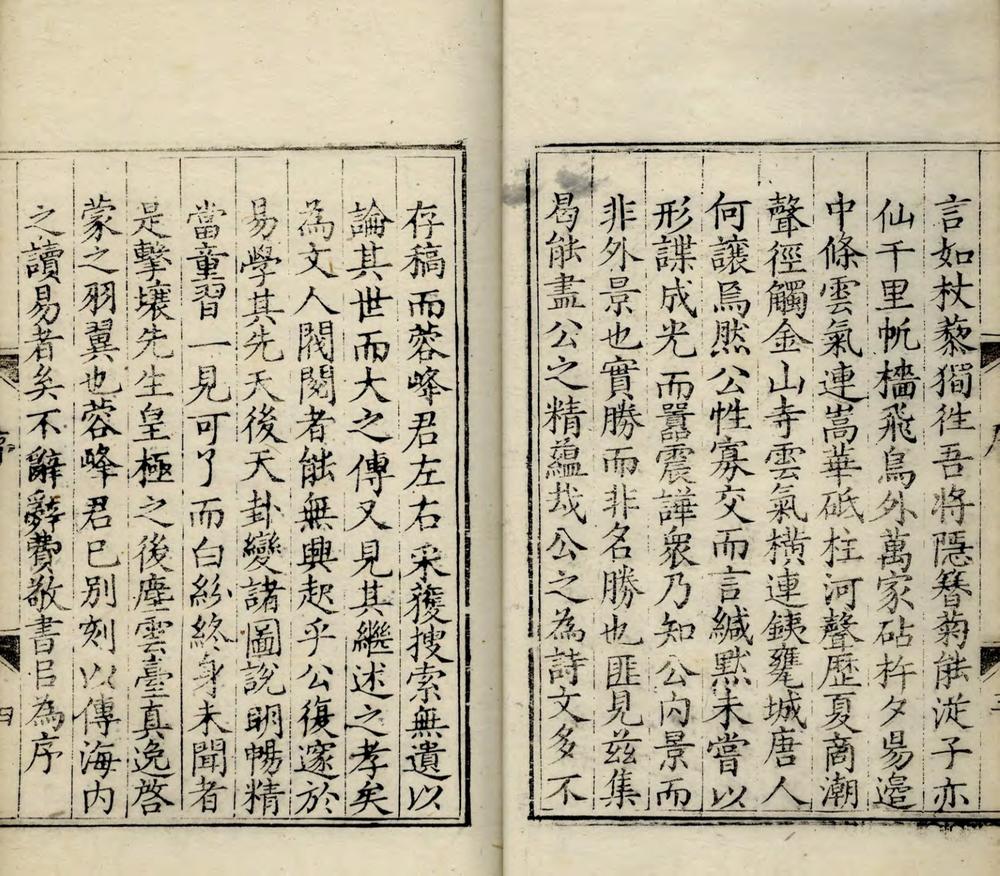 言如杖藜獨徃吾將隱簪菊能泛子亦
仙千里帆檣飛鳥外萬家砧杵夕昜邉
中條雲氣連嵩華砥柱河聲歴夏商潮
聲徑觸金山寺雲氣橫連鐵甕城唐人
何讓焉然公性寡交而言緘黙未嘗以
形諜成光而嚣震譁衆乃知公内景而
非外景也實勝而非名勝也匪見兹集
曷能盡公之精蘊㢤公之為詩文多不
存稿而蓉峰君左右采獲搜索無遺以
論其世而大之傳又見其繼述之孝矣
為文人閥閱者能無興起乎公復邃於
易學其先天後天卦變諸圖說明暢精
當童習一見可了而白紛終身未聞者
是擊壤先生皇極之後塵雲臺真逸啓
蒙之羽翼也蓉峰君已別刻以傳海内
之讀易者矣不辭辭費敬書㠯為序
四